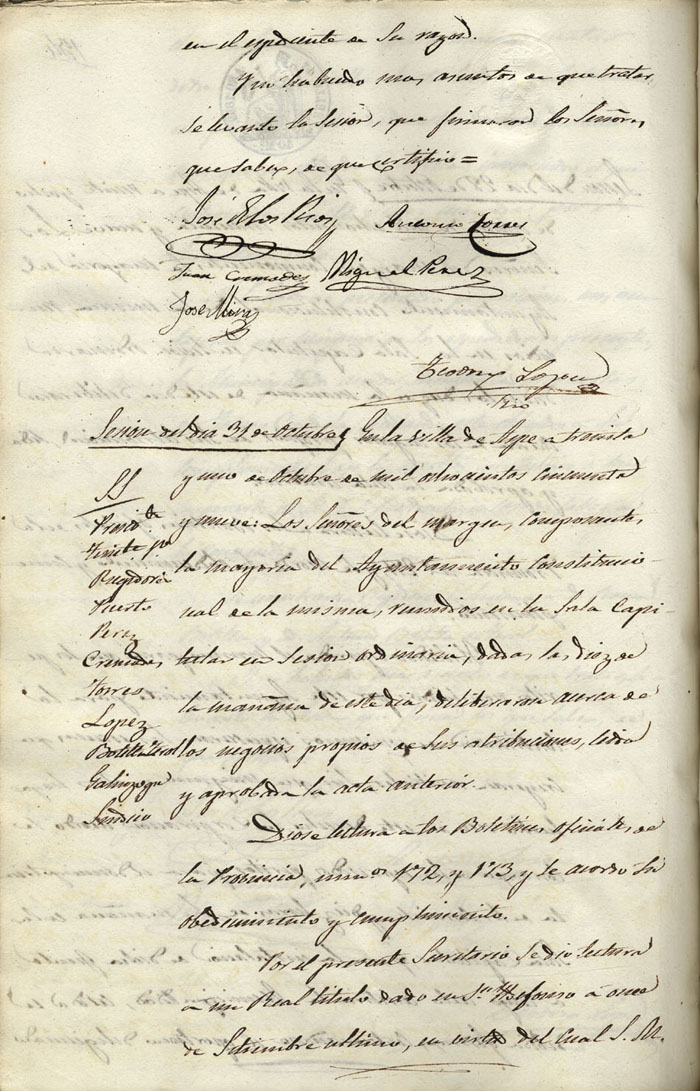 en el espediente de su razon.
Y no habiendo mas asuntos de que tratar
se levantó la Sesion, que firmaron los Señores
que saben, de que certifico=
José de los Rios
Antonio Torres
Juan Cremades
Miguel Perez
Jose Mira
Lopez
Srio
Sesion del dia 31 de Octubre
En la villa de Aspe a treinta
y uno de Octubre de mil ochocientos cincuenta
y nueve: Los Señores del margen, componentes
la mayoria del Ayuntamiento Constitucio-
nal de la misma, reunidos en la Sala Capi-
tular en Sesion ordinaria, dadas las diez de
la mañana de este dia, deliberaron acerca de
los negocios propios de sus atribuciones, leida
y aprobada la acta anterior.
SS
Presid.te
Tenite. pro
Regidores
Puerto
Perez
Cremades
Torres
Lopez
Botella
Galinsoga
Sindico
Diose lectura a los Boletines oficiales de
la Provincia, num.os 172, y 173, y se acordo su
obedecimiento y cumplimiento.
Por el presente Secretario se dio lectura
a un Real titulo dado en S.n Ildefonso á once
de Setiembre ultimo, en virtud del cual S. M.